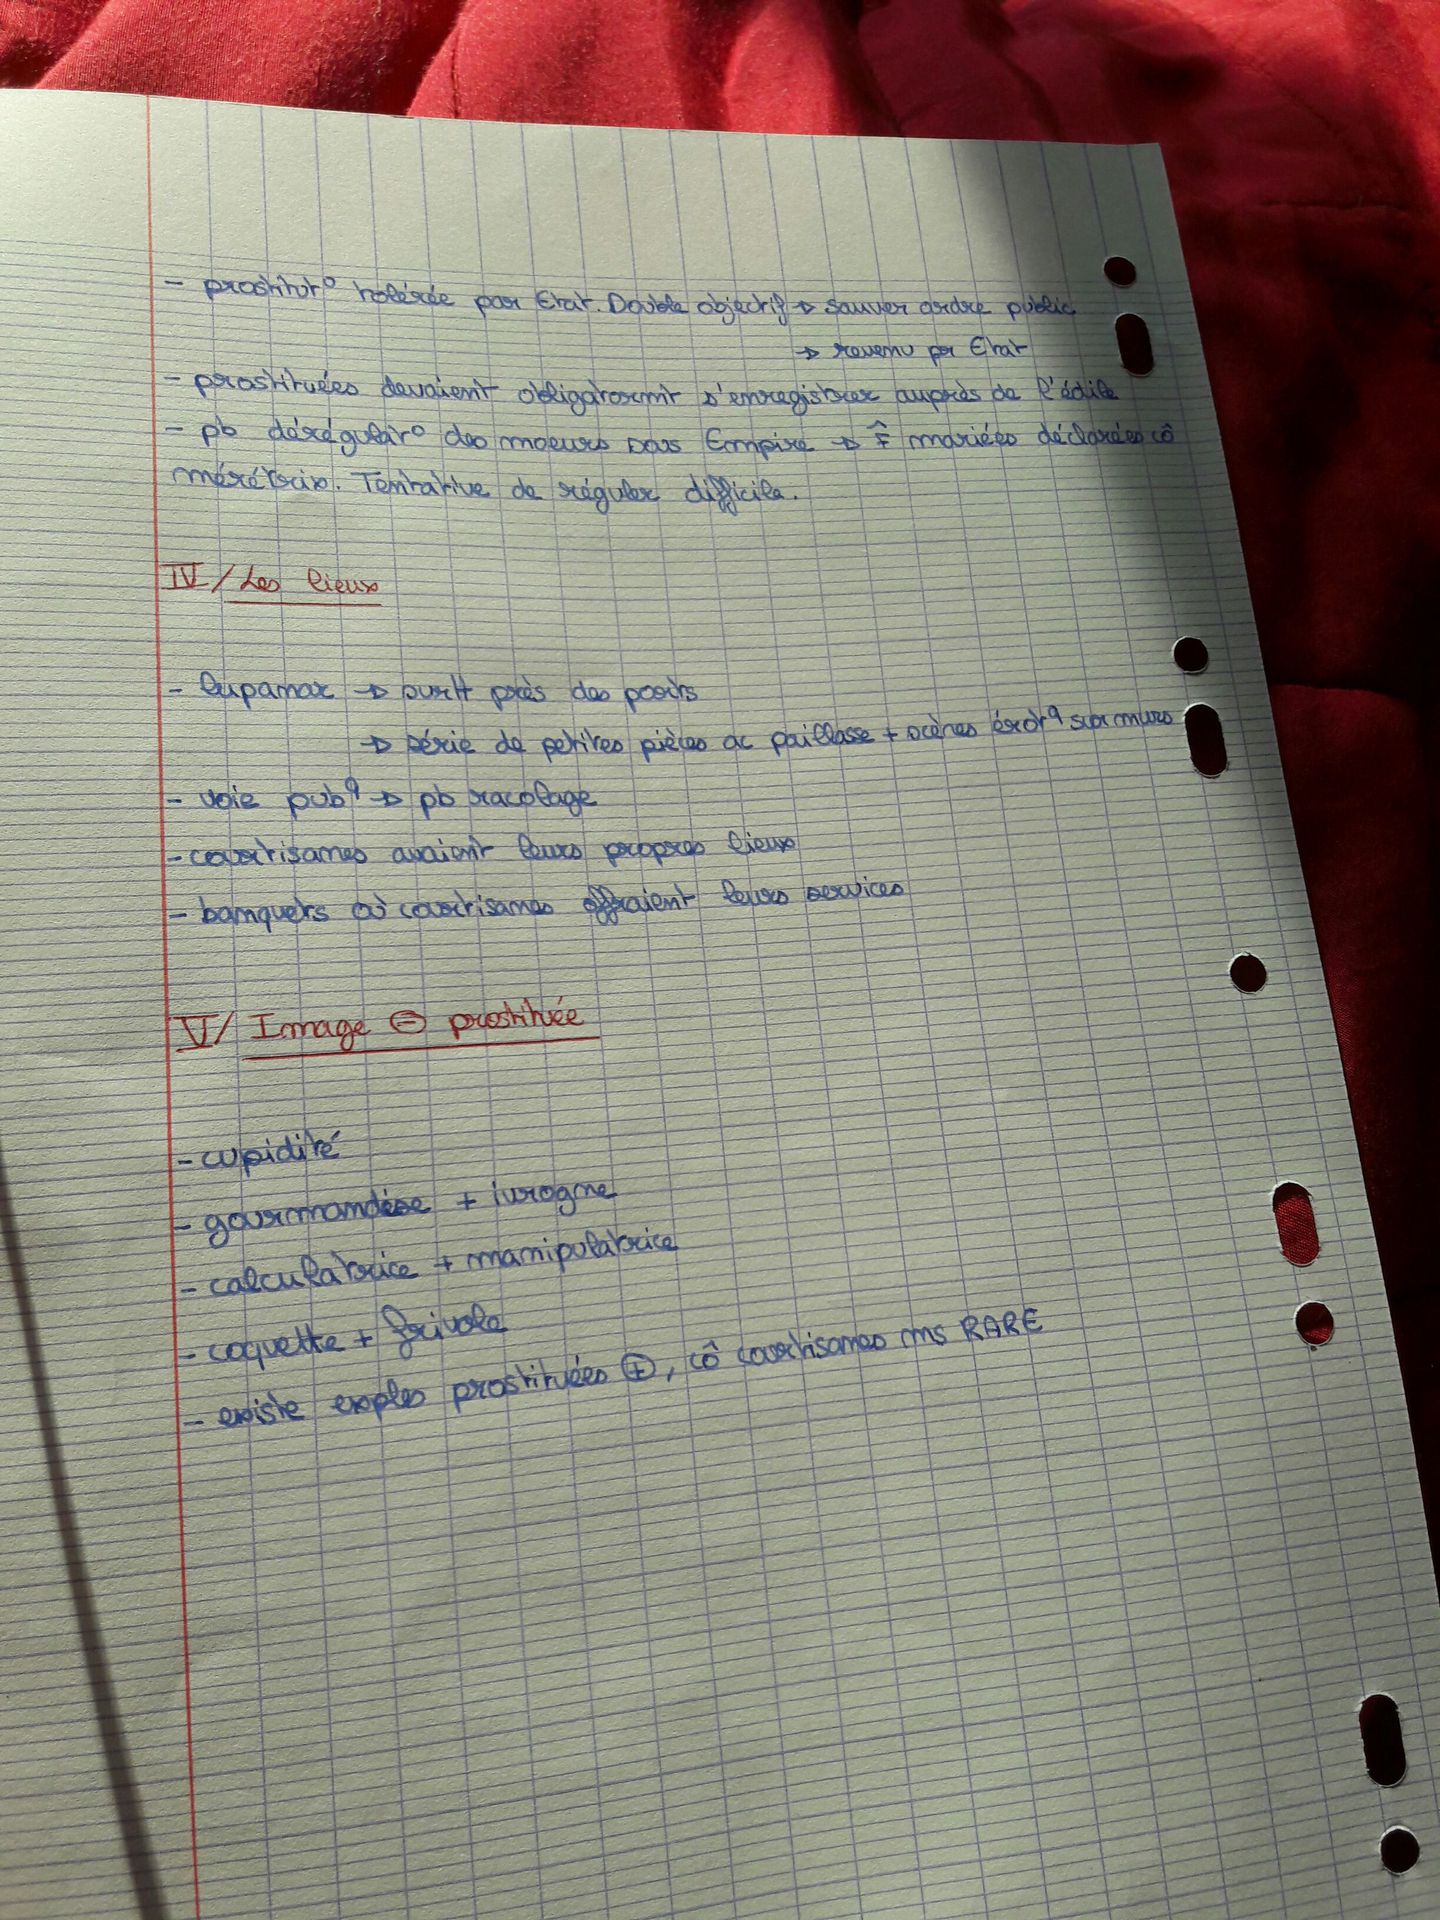 - prostitut° tolérée par Etat. Double objectif → sauver ordre public
→ revenu pr Etat
- prostituées devaient obligatoirmt s'enregistrer auprès de l'édile
- pb dérégulat° des moeurs sous Empire → F mariées déclarées cô
mérétrix. Tentative de réguler difficile.
IV/ Les lieux
- lupanar → svt près des ports
→ série de petites pièces ac paillasse + scènes érotq sur murs
- voie pubq → pb racolage
- courtisanes avaient leurs propres lieux
- banquets où courtisanes offraient leurs services
V/ Image ⊖ prostituée
- cupidité
- gourmandise + ivrogne
- calculatrice + manipulatrice
- coquette + frivole
- existe exples prostituées ⊕, cô courtisanes ms RARE